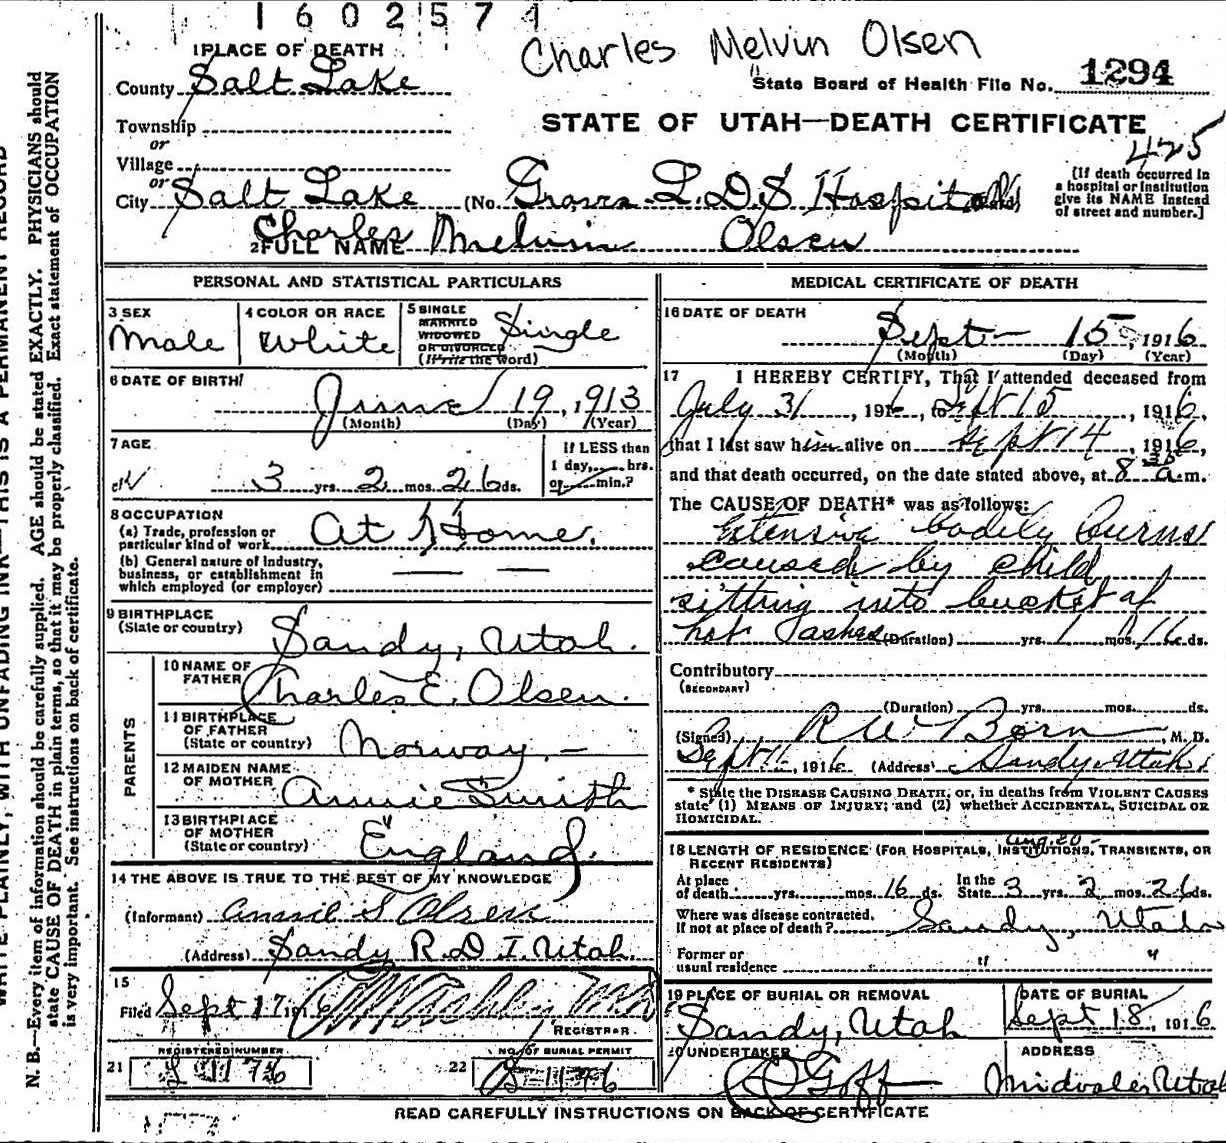 1602574
Charles Melvin Olsen
1 PLACE OF DEATH
County Salt Lake
State Board of Health File No. 1294
Township
or
STATE OF UTAH—DEATH CERTIFICATE
425
Village
or
City Salt Lake (No. L.D.S Hospital
[If death occurred in
a hospital or institution
give its NAME instead
of street and number.]
2 FULL NAME Charles Melvin Olsen
PERSONAL AND STATISTICAL PARTICULARS
3 SEX
Male
4 COLOR OR RACE
White
5 SINGLE
MARRIED
WIDOWED
OR DIVORCED
(Write the word)
Single
6 DATE OF BIRTH
June 19, 1913
(Month) (Day) (Year)
7 AGE
3 yrs. 2 mos. 26 ds.
If LESS than
1 day, hrs.
or min.?
8 OCCUPATION
(a) Trade, profession or
particular kind of work
At Home.
(b) General nature of industry,
business, or establishment in
which employed (or employer)
9 BIRTHPLACE
(State or country)
Sandy, Utah.
PARENTS
10 NAME OF
FATHER
Charles E. Olsen.
11 BIRTHPLACE
OF FATHER
(State or country)
Norway —
12 MAIDEN NAME
OF MOTHER
Annie Smith
13 BIRTHPLACE
OF MOTHER
(State or country)
England.
14 THE ABOVE IS TRUE TO THE BEST OF MY KNOWLEDGE
(Informant) Annie S Olsen
(Address) Sandy R.D 1. Utah.
15
Filed Sept 17 1916
REGISTRAR.
21 REGISTERED NUMBER
1176
22 NO. OF BURIAL PERMIT
1176
MEDICAL CERTIFICATE OF DEATH
16 DATE OF DEATH
Sept— 15, 1916
(Month) (Day) (Year)
17 I HEREBY CERTIFY, That I attended deceased from
July 31, 1916, to Sept 15, 1916,
that I last saw him alive on Sept 14, 1916,
and that death occurred, on the date stated above, at 8 35 a.m.
The CAUSE OF DEATH* was as follows:
Extensive bodily burns
caused by child
sitting into bucket of
hot ashes (Duration) yrs. 1 mos. 16 ds.
Contributory
(SECONDARY)
(Duration) yrs. mos. ds.
(Signed) R W Born M. D.
Sept, 1916 (Address) Sandy, Utah
* State the DISEASE CAUSING DEATH, or, in deaths from VIOLENT CAUSES
state (1) MEANS OF INJURY; and (2) whether ACCIDENTAL, SUICIDAL OR
HOMICIDAL.
18 LENGTH OF RESIDENCE (FOR HOSPITALS, INSTITUTIONS, TRANSIENTS, OR
RECENT RESIDENTS)
Aug. 20
At place
of death yrs. mos. 16 ds.
In the
State 3 yrs. 2 mos. 26 ds.
Where was disease contracted,
if not at place of death? Sandy, Utah
Former or
usual residence " "
19 PLACE OF BURIAL OR REMOVAL
Sandy, Utah
DATE OF BURIAL
Sept 18, 1916
20 UNDERTAKER
Goff
ADDRESS
Midvale, Utah
READ CAREFULLY INSTRUCTIONS ON BACK OF CERTIFICATE
WRITE PLAINLY, WITH UNFADING INK—THIS IS A PERMANENT RECORD
N. B.—Every item of information should be carefully supplied. AGE should be stated EXACTLY. PHYSICIANS should
state CAUSE OF DEATH in plain terms, so that it may be properly classified. Exact statement of OCCUPATION
is very important. See instructions on back of certificate.